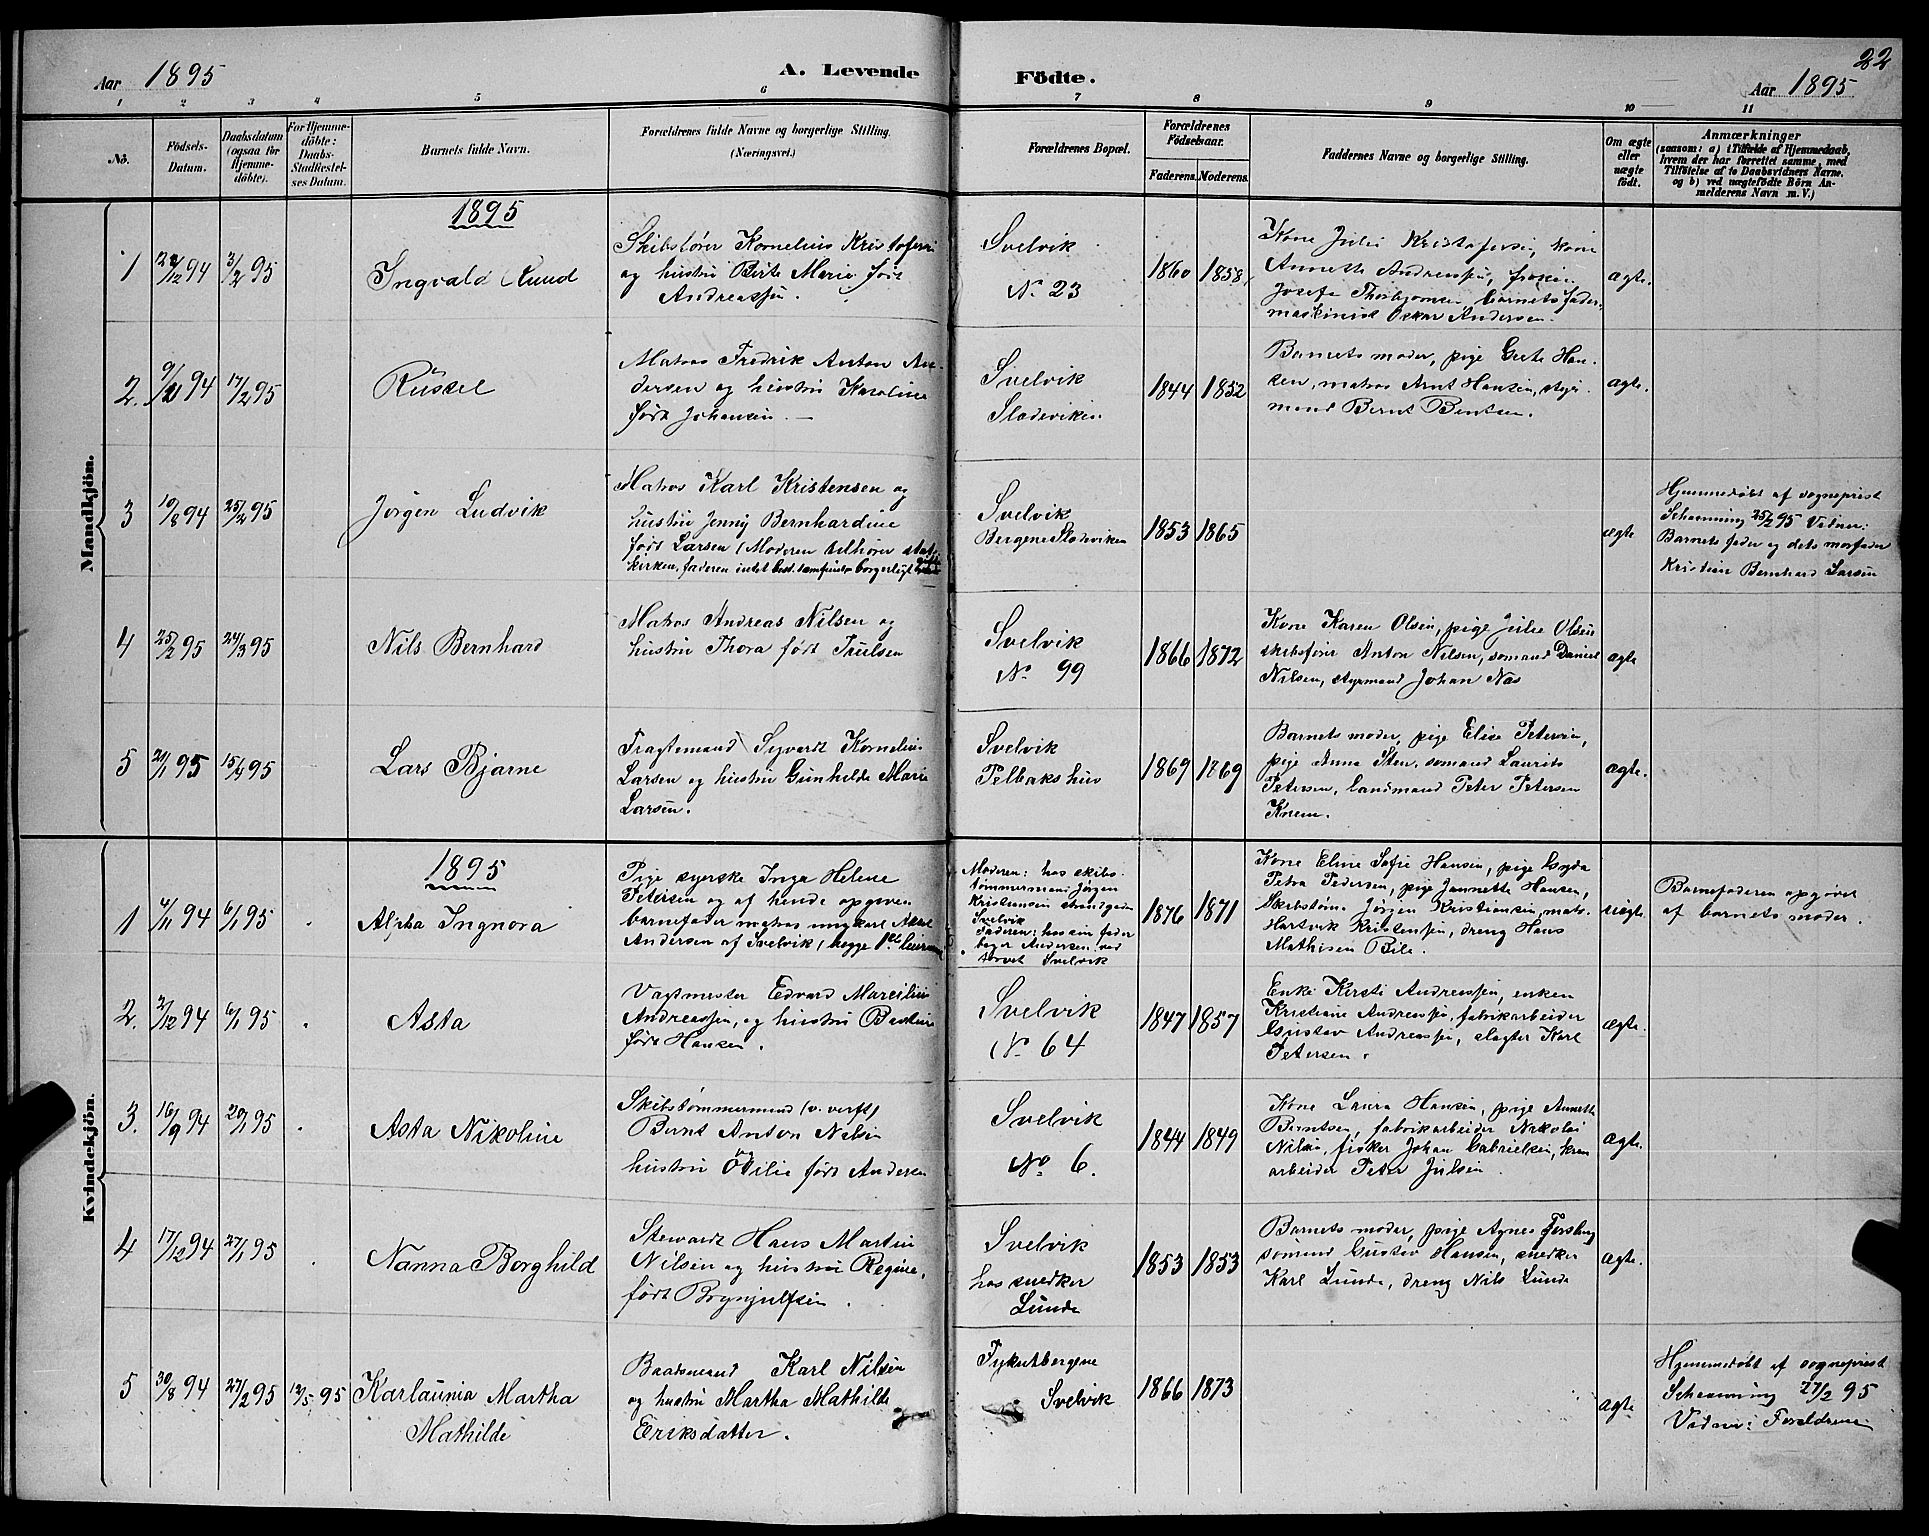 22
Aar 1895
A. Levende
Födte.
Aar 1895
1 2 3 4 5 6 7 8 9 10 11
No.
Födsels-
Datum.
Daabsdatum
(ogsaa for
Hjemme-
döbte).
For Hjemme-
döbte:
Daabs-
Stadfæstel-
ses Datum.
Barnets fulde Navn.
Forældrenes fulde Navne og borgerlige Stilling.
(Næringsvei.)
Forældrenes Bopæl.
Forældrenes
Födselsaar.
Faderens. Moderens.
Faddernes Navne og borgerlige Stilling.
Om ægte
eller
uægte
födt.
Anmærkninger
(saasom: a) i Tilfælde af Hjemmedaab,
hvem der har forrettet samme, med
Tilföielse af to Daabsvidners Navne,
og b) ved uægtefödte Börn An-
melderens Navn m. V.)
Mandkjön.
1895
1
94
3/2 95
Ingvald
Skibsfører Kornelius Kristofersen
og hustru Berte Marie født
Andreassen.
Svelvik
No 23
1860 1858
Kone Julie Kristofersen, kone
Annette Andreassen, frøken
Josefa Thorbjørnsen, barnets fader,
maskinist Oskar Andersen.
ægte.
2.
94
17/2 95
Russel
Matros Fredrik Anton An-
dersen og hustru Karoline
født Johansen. —
Svelvik
Sladeviken
1844 1852
Barnets moder, pige Grete Han-
sen, matros Arnt Hansen, styr-
mand Bernt Bentsen.
ægte.
3
10/8 94
25/2 95
Jørgen Ludvik
Matros Karl Kristensen og
hustru Jenny Bernhardine
født Larsen (Moderen tilhører stats-
kirken, faderen intet best. samfund borgerligt
Svelvik
Bergene Sladeviken
1853 1865
ægte
Hjemmedøbt af sogneprest
Schanning 25/2 95 Vidner:
Barnets fader og dets morfader
Kristian Bernhard Larsen
4
25/2 95
24/3 95
Nils Bernhard
Matros Andreas Nilsen og
hustru Thora født Truelsen
Svelvik
No 99
1866 1872
Kone Karen Olsen, pige Julie Olsen
skibsfører Anton Nilsen, sømand Daniel
Nilsen, styrmand Johan Næs
ægte
5
95
15/4 95
Lars Bjarne
Fragtemand Syvardt Kornelius
Larsen og hustru Gunhilde Marie
Larsen.
Svelvik
Pelbaks hus
1869 1869
Barnets moder, pige Elise Petersen,
pige Anna Sten, sømand Laurits
Petersen, landmand Peter Petersen
Knem.
ægte.
Kvindekjön.
1895
1
4/11 94
6/1 95
Alpha Ingnora
Pige syerske Inga Helene
Petersen og af hende opgiven
barnefader matros ungkarl Aksel
Andersen af Svelvik (begge 1ste leiermaal
Moderen: hos skibs-
tømmermand Jørgen
Kristiansen strandgaden
Svelvik
Faderen: hos sin fader
bager Andersen ved
torvet Svelvik
1876 1871
Kone Eline Sofie Hansen, pige Gyda
Petra Pedersen, pige Jannette Hansen,
Skibstøm. Jørgen Kristiansen, matr.
Hartvik Kristensen, dreng Hans
Mathisen Bile.
uægte
Barnefaderen opgivet
af barnets moder.
2.
2/12 94
6/1 95
Asta
Vagtmester Edvard Marcilius
Andreassen, og hustru
født Hansen.
Svelvik
No 64
1847 1857
Enke Kersti Andreassen, enken
Kristiane Andreassen, fabrikarbeider
Gustav Andreassen, slagter Karl
Petersen.
ægte
3.
16/9 94
20/1 95
Asta Nikoline
Skibstømmermand (v. verft)
Bernt Anton Nilsen
og
hustru Otilie født Andersen
Svelvik
No 6.
1844 1849
Kone Laura Hansen, pige Annette
Berntsen, fabrikarbeider Nikolai
Nilsen, fisker Johan Gabrielsen,
arbeider Peter Julsen
ægte.
4
17/12 94
27/1 95
Nanna Borghild
Stewardt Hans Martin
Nilsen og hustru Regine,
født Brynjulfsen.
Svelvik
hos snedker
Lunde
1853 1853
Barnets moder, pige Agnes Forsberg
sømand Gustav Hansen, snedker
Karl Lunde, dreng Nils Lunde
ægte.
5
30/8 94
27/2 95
12/5 95
Karlaunia Martha
Mathilde
Baadsmand Karl Nilsen
og hustru Martha Mathilde
Eriksdatter.
Svelvik
1866 1873
ægte
Hjemmedøbt af sogneprest
Schanning 27/2 95
Vidner: Forældrene